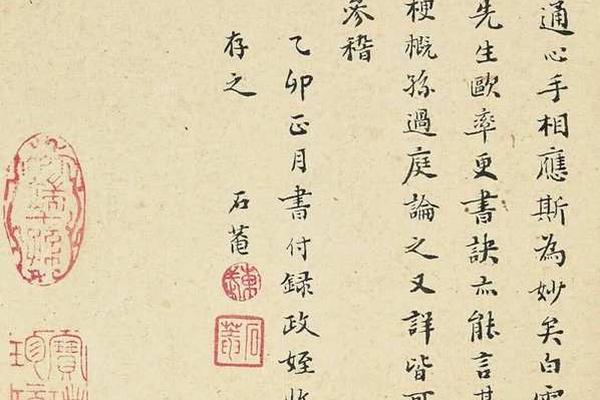 通心手相應斯為妙矣白雲
先生歐率更書訣亦能言其
梗概孫過庭論之又詳皆可
參稽
乙卯正月書付録政姪收
存之
石菴